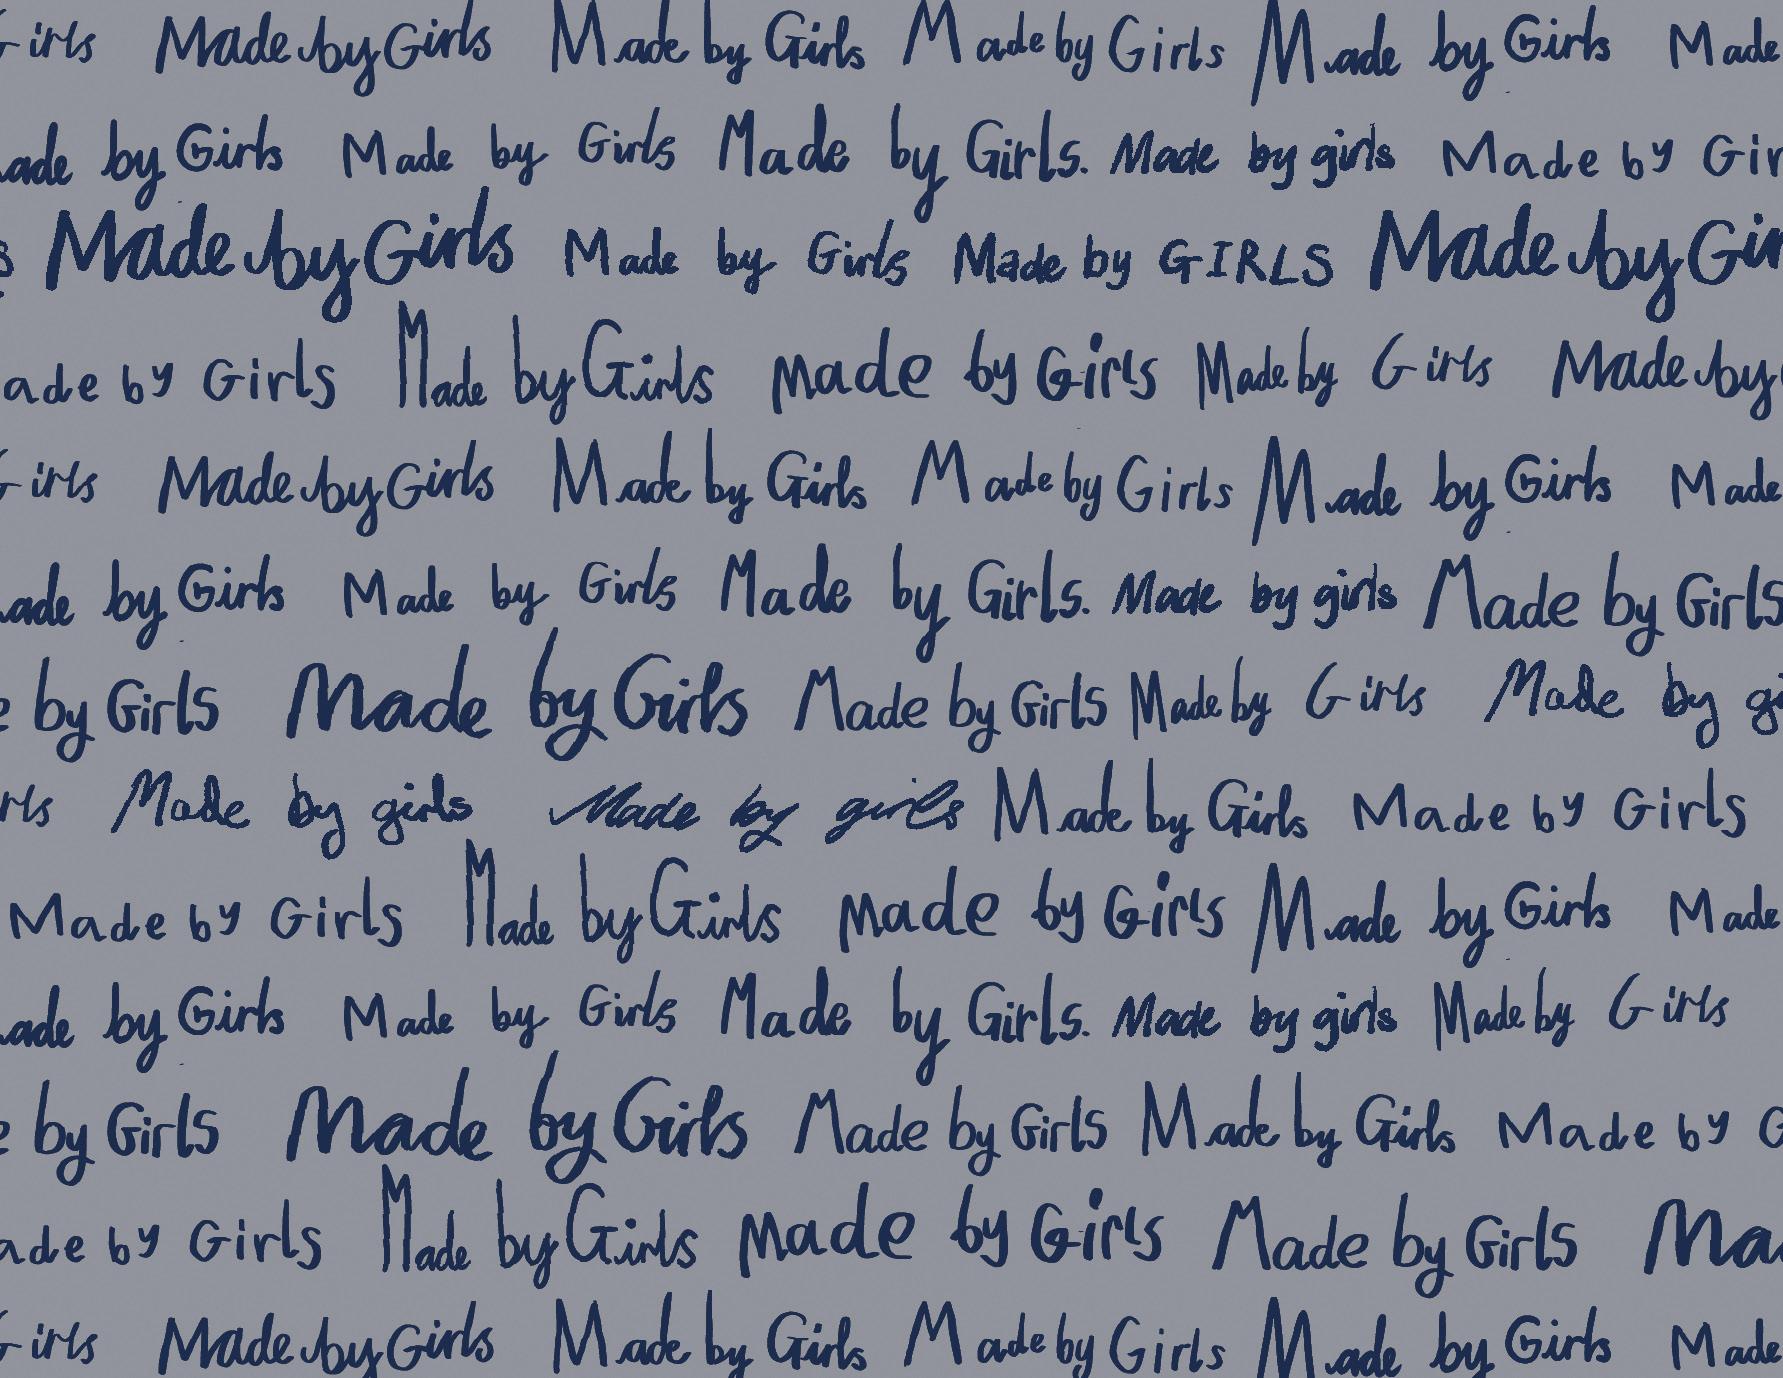 Girls Made by Girls Made by Girls Made by Girls Made by Girls Made
ade by Girls Made by Girls Made by Girls. Made by girls Made by Gir
s Made by Girls Made by Girls Made by GIRLS Made by Gir
ade by Girls Made by Girls made by Girls Made by Girls Made by
Girls Made by Girls Made by Girls Made by Girls Made by Girls Made
ade by Girls Made by Girls Made by Girls. Made by girls Made by Girls
e by Girls Made by Girls Made by Girls Made by Girls Made by gi
rls Made by girls Made by girls Made by Girls Made by Girls
Made by Girls Made by Girls made by Girls Made by Girls Made
ade by Girls Made by Girls Made by Girls. Made by girls Made by Girls
e by Girls Made by Girls Made by Girls Made by Girls Made by G
ade by Girls Made by Girls made by Girls Made by Girls Ma
Girls Made by Girls Made by Girls Made by Girls Made by Girls Made